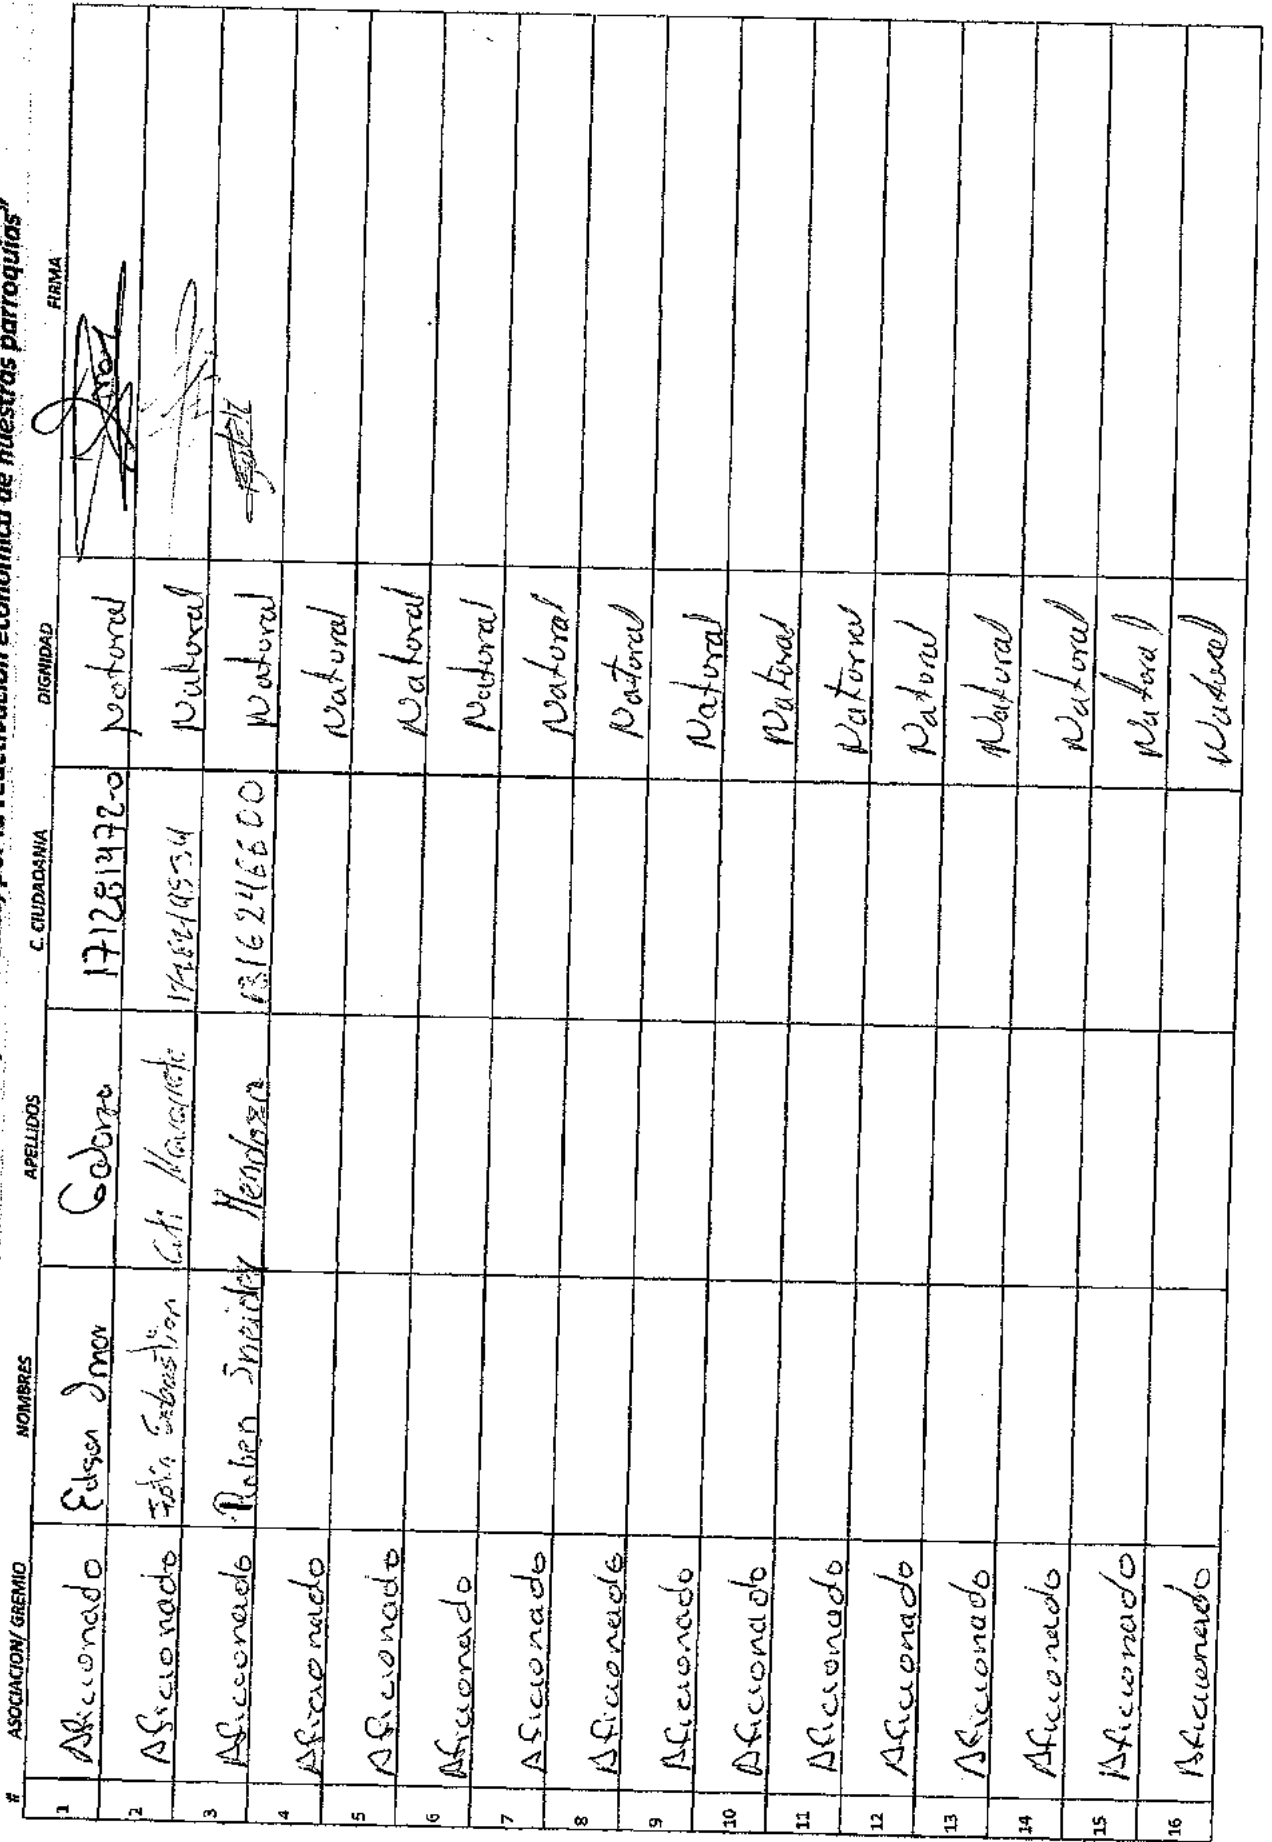 por la reactivación económica de nuestras parroquias"
# ASOCIACION/ GREMIO NOMBRES APELLIDOS C. CIUDADANIA DIGNIDAD FIRMA
1 Aficionado Edison 171281472-0 Natural
2 Aficionado Sebastian Natural
3 Aficionado Ruben Sneider Mendoza 1316246600 Natural
4 Aficionado Natural
5 Aficionado Natural
6 Aficionado Natural
7 Aficionado Natural
8 Aficionado Natural
9 Aficionado Natural
10 Aficionado Natural
11 Aficionado Natural
12 Aficionado Natural
13 Aficionado Natural
14 Aficionado Natural
15 Aficionado Natural
16 Aficionado Natural